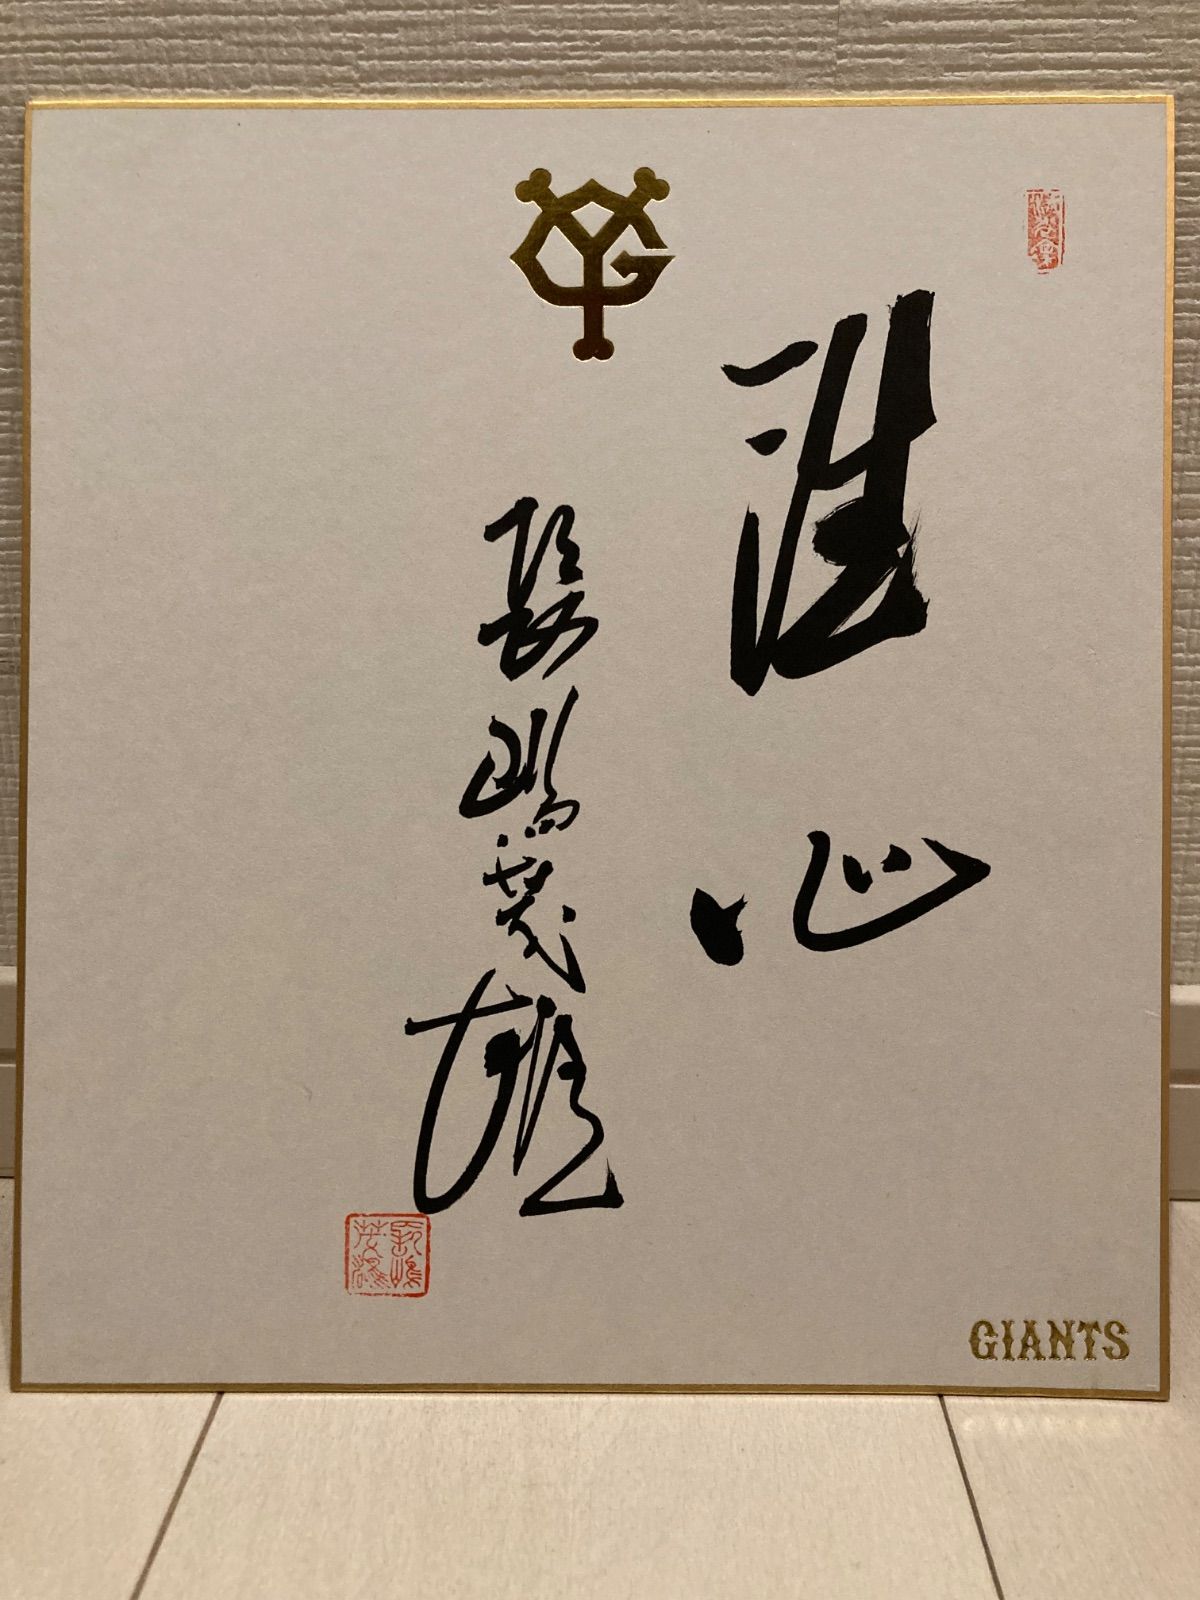 洗心
長嶋茂雄
長嶋茂雄
GIANTS